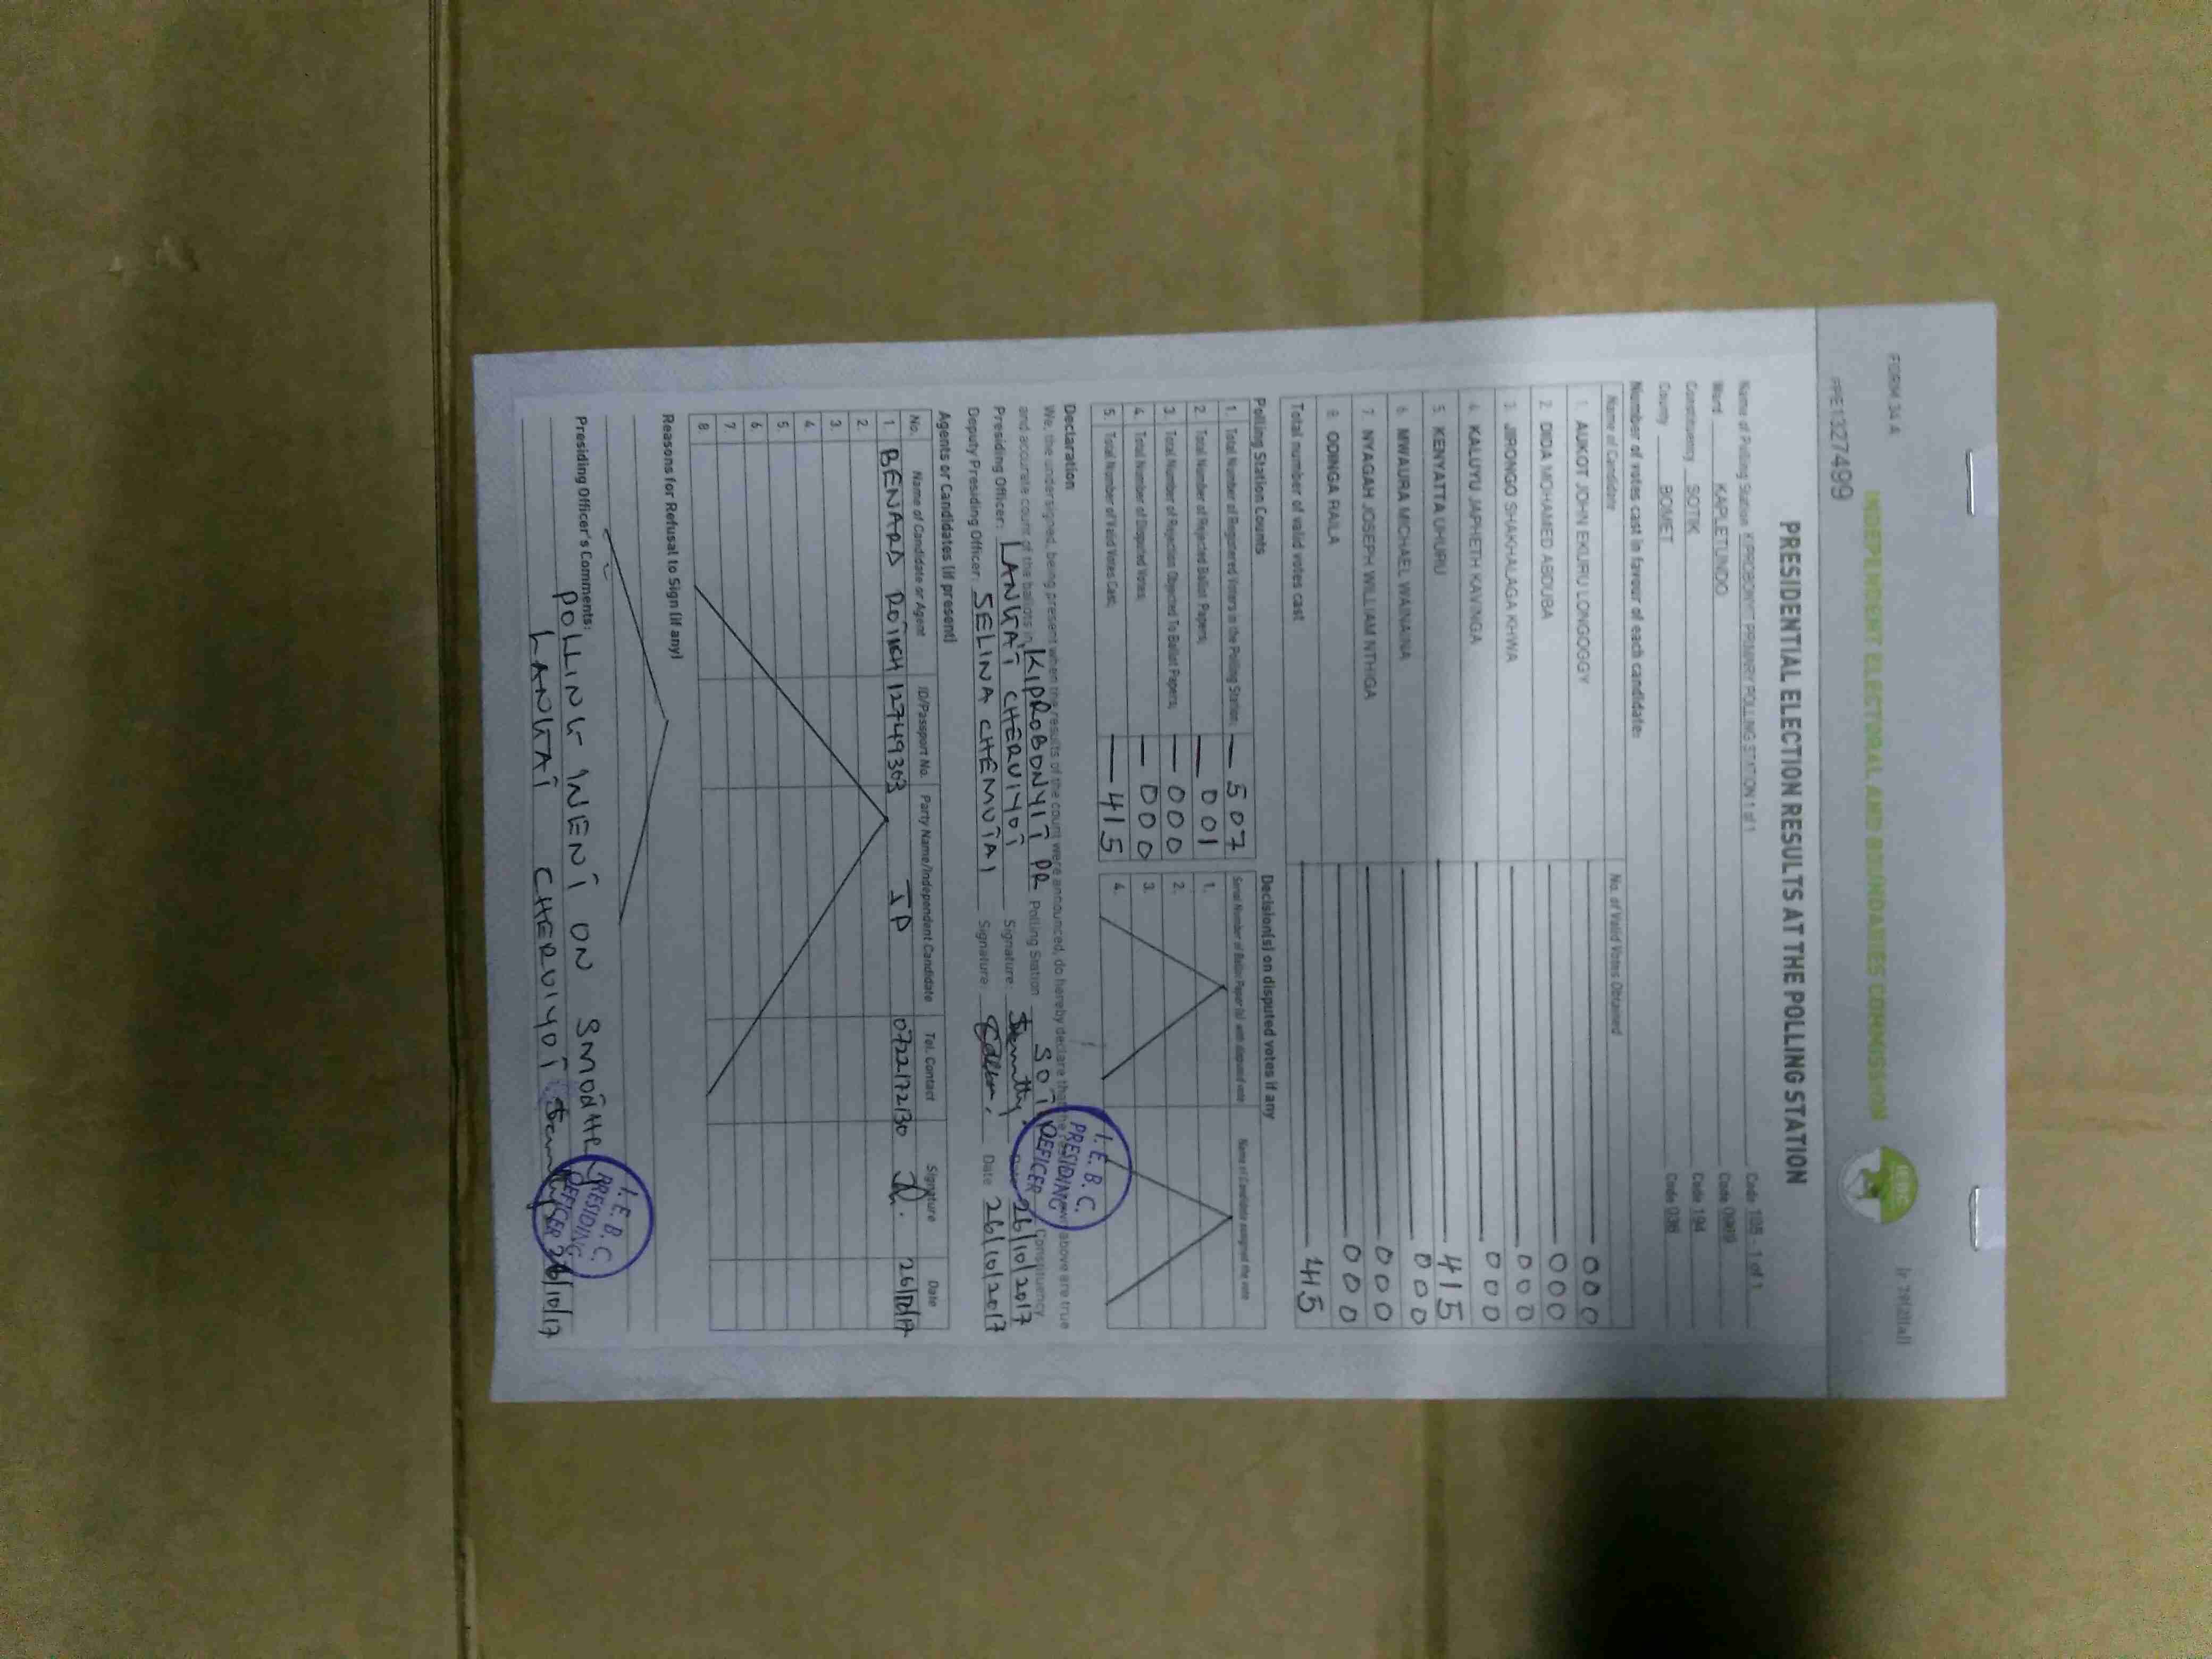 FORM 34 A
INDEPENDENT ELECTORAL AND BOUNDARIES COMMISSION
PPE1327499
PRESIDENTIAL ELECTION RESULTS AT THE POLLING STATION
Name of Polling Station KIPROBONYIT PRIMARY POLLING STATION 1 of 1 Code 105 - 1 of 1
Ward KAPLETUNDO Code 0989
Constituency SOTIK Code 194
County BOMET Code 036
Number of votes cast in favour of each candidate:
Name of Candidate No. of Valid Votes Obtained
1. AUKOT JOHN EKURU LONGOGGY 000
2. DIDA MOHAMED ABDUBA 000
3. JIRONGO SHAKHALAGA KHWA 000
4. KALUYU JAPHETH KAVINGA 000
5. KENYATTA UHURU 415
6. MWAURA MICHAEL WAINAINA 000
7. NYAGAH JOSEPH WILLIAM NTHIGA 000
8. ODINGA RAILA 000
Total number of valid votes cast 415
Polling Station Counts
1. Total Number of Registered Voters in the Polling Station; 507
2. Total Number of Rejected Ballot Papers; 001
3. Total Number of Rejection Objected To Ballot Papers; 000
4. Total Number of Disputed Votes; 000
5. Total Number of Valid Votes Cast; 415
Decision(s) on disputed votes if any
Serial Number of Ballot Paper(s) with disputed vote Name of Candidate assigned the vote
1.
2.
3.
4.
Declaration
We, the undersigned, being present when the results of the count were announced, do hereby declare that the results above are true
and accurate count of the ballots in KIPROBONYIT PR Polling Station SOTIK Constituency
Presiding Officer: LANGAT CHERUIYOT Signature: Date 26/10/2017
Deputy Presiding Officer: SELINA CHEMUTAI Signature: Date 26/10/2017
I.E.B.C.
PRESIDING
OFFICER
Agents or Candidates (if present)
No. Name of Candidate or Agent ID/Passport No. Party Name/Independent Candidate Tel. Contact Signature Date
1. BENARD ROTICH 12749363 JP 0722172130 26/10/17
2.
3.
4.
5.
6.
7.
8.
Reasons for Refusal to Sign (if any)
Presiding Officer's Comments:
POLLING WENT ON SMOOTHLY
LANGAT CHERUIYOT 26/10/17
I.E.B.C.
PRESIDING
OFFICER